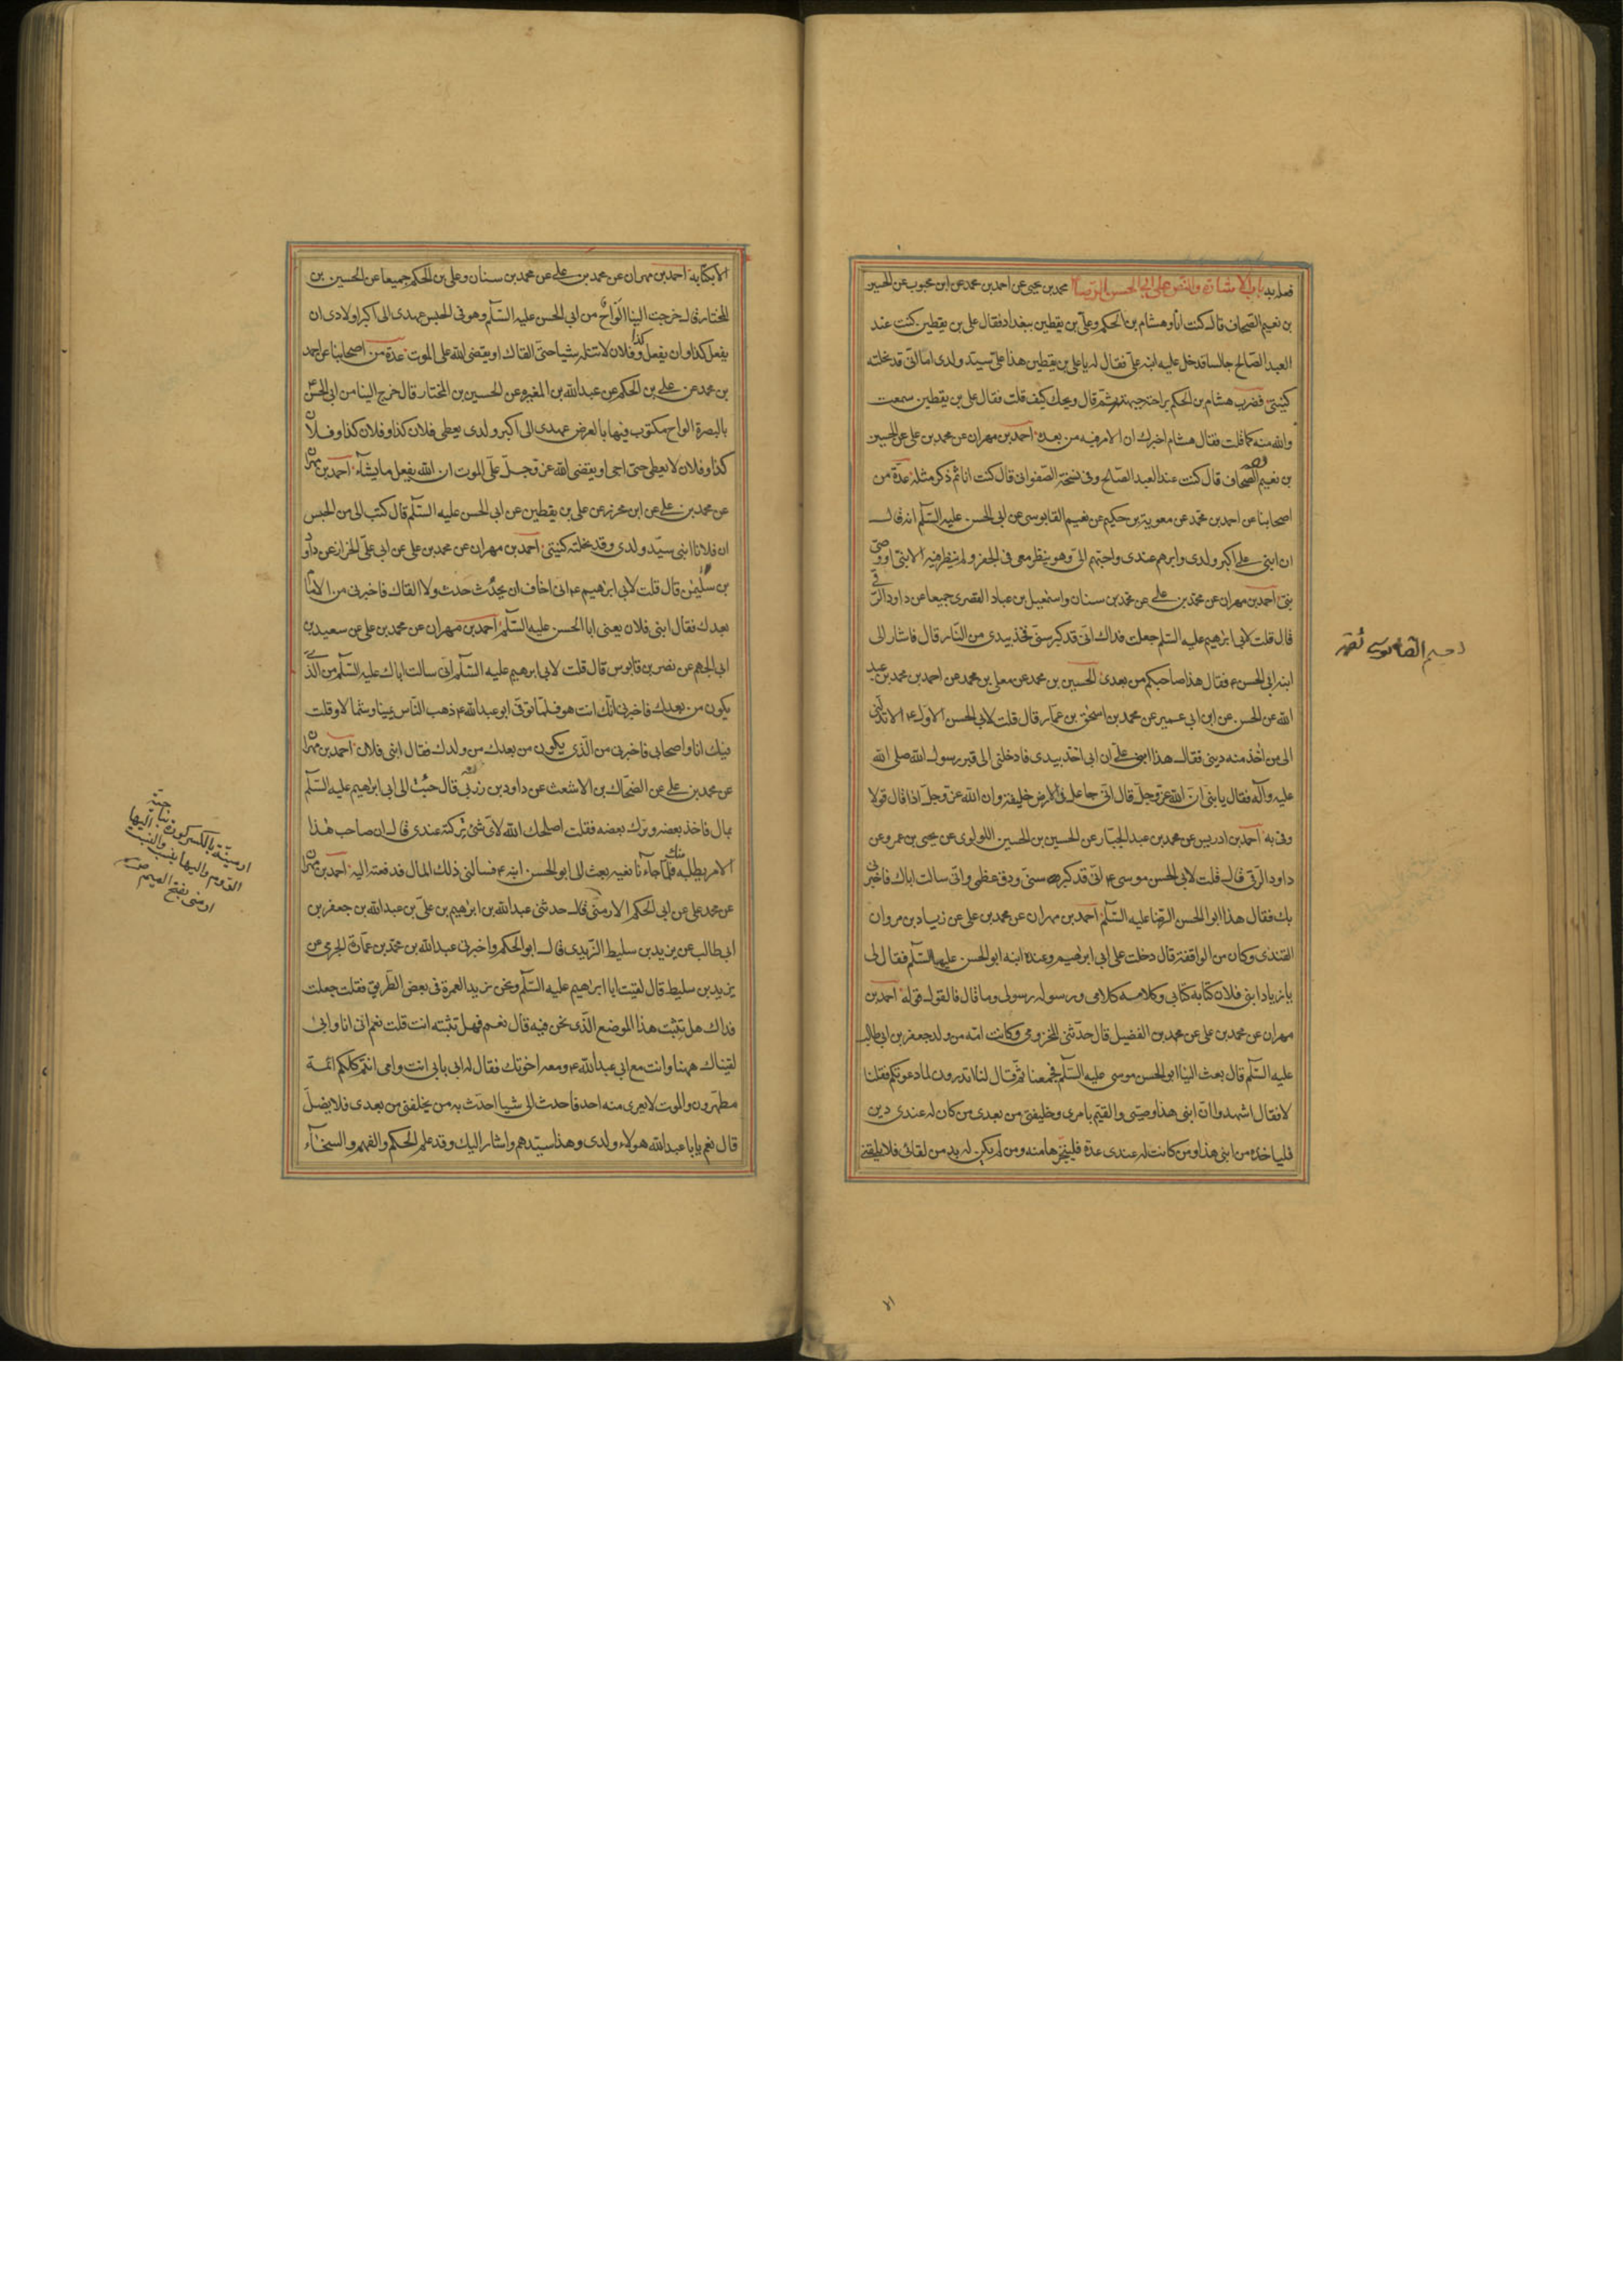 فعل بيد باب الاشارة والنص على ابى الحسن الرضا ع محمد بن يحيى عن احمد بن محمد عن ابن محبوب عن الحسين
بن نعيم الصحاف قال كنت انا وهشام بن الحكم وعلى بن يقطين ببغداد فقال على بن يقطين كنت عند
العبد الصالح جالسا فدخل عليه ابنه على فقال لى يا على بن يقطين هذا على سيد ولدى اما انى قد نحلته
كنيتى فضرب هشام بن الحكم براحته جبهته ثم قال ويحك كيف قلت فقال على بن يقطين سمعت
والله منه كما قلت فقال هشام اخبرك ان الامر فيه من بعده احمد بن مهران عن محمد بن على عن الحسين
بن نعيم الصحاف قال كنت عند العبد الصالح وفى نسخة الصفوانى قال كنت انا ثم ذكر مثله عدة من
اصحابنا عن احمد بن محمد عن معوية بن حكيم عن نعيم القابوسى عن ابى الحسن عليه السلم انه قال
ان ابنى على اكبر ولدى وابرهم عندى واحبهم الى وهو ينظر معى فى الجفر ولم ينظر فيه الا نبى او وصى
نبى احمد بن مهران عن محمد بن على عن محمد بن سنان واسمعيل بن عباد القصرى جميعا عن داود الرقى
قال قلت لابى ابرهيم عليه السلم جعلت فداك انى قد كبر سنى فخذ بيدى من النار قال فاشار الى
ابنه ابى الحسن ع فقال هذا صاحبكم من بعدى الحسين بن محمد عن معلى بن محمد عن احمد بن محمد بن عبد
الله عن الحسن عن ابن ابى عمير عن محمد بن اسحق بن عمار قال قلت لابى الحسن الاول ع الا تدلنى
الى من اخذ منه دينى فقال هذا ابنى على ان ابى اخذ بيدى فادخلنى الى قبر رسول الله صلى الله
عليه وآله فقال يا بنى ان الله عز وجل قال انى جاعل فى الارض خليفة وان الله عز وجل اذا قال قولا
وفى به احمد بن ادريس عن محمد بن عبد الجبار عن الحسين بن الحسين اللولوى عن يحيى بن عمرو عن
داود الرقى قال قلت لابى الحسن موسى ع انى قد كبرت سنى ودق عظمى وانى سالت اباك فاخبرنى
بك فقال هذا ابو الحسن الرضا عليه السلم احمد بن مهران عن محمد بن على عن زياد بن مروان
القندى وكان من الواقفة قال دخلت على ابى ابرهيم وعنده ابنه ابو الحسن عليهما السلم فقال لى
يا زياد ابنى فلان كتابه كتابى وكلامه كلامى ورسوله رسولى وما قال فالقول قوله احمد بن
مهران عن محمد بن على عن محمد بن الفضيل قال حدثنى المخزومى وكانت امه من ولد جعفر بن ابى طالب
عليه السلم قال بعث الينا ابو الحسن موسى عليه السلم فجمعنا ثم قال لنا اتدرون لما دعوتكم فقلنا
لا فقال اشهدوا ان ابنى هذا وصيى والقيم بامرى وخليفتى من بعدى من كان له عندى دين
فلياخذه من ابنى هذا ومن كانت له عندى عدة فلينجزها منه ومن لم يكن له بد من لقائى فلا يلقنى
القابوسى ثقة
الا بكتابه احمد بن مهران عن محمد بن على عن محمد بن سنان وعلى بن الحكم جميعا عن الحسين بن
المختار قال خرجت الينا الواح من ابى الحسن عليه السلم وهو فى الحبس عهدى الى اكبر اولادى ان
يفعل كذا وان يفعل كذا وفلان لا تنله شيا حتى القاك او يقضى الله على الموت عدة من اصحابنا عن احمد
بن محمد عن على بن الحكم عن عبد الله بن المغيرة عن الحسين بن المختار قال خرج الينا من ابى الحسن ع
بالبصرة الواح مكتوب فيها بالعرض عهدى الى اكبر ولدى يعطى فلان كذا وفلان كذا وفلان
كذا وفلان لا يعطى حتى اجى او يقضى الله عز وجل على الموت ان الله يفعل ما يشاء احمد بن مهران
عن محمد بن على عن ابن محرز عن على بن يقطين عن ابى الحسن عليه السلم قال كتب الى من الحبس
ان فلانا ابنى سيد ولدى وقد نحلته كنيتى احمد بن مهران عن محمد بن على عن ابى على الخزاز عن داود
بن سليمن قال قلت لابى ابراهيم ع انى اخاف ان يحدث حدث ولا القاك فاخبرنى من الامام
بعدك فقال ابنى فلان يعنى ابا الحسن عليه السلم احمد بن مهران عن محمد بن على عن سعيد بن
ابى الجهم عن نصر بن قابوس قال قلت لابى ابرهيم عليه السلم انى سالت اباك عليه السلم من الذى
يكون من بعدك فاخبرنى انك انت هو فلما توفى ابو عبد الله ع ذهب الناس يمينا وشمالا وقلت
فيك انا واصحابى فاخبرنى من الذى يكون من بعدك من ولدك فقال ابنى فلان احمد بن مهران
عن محمد بن على عن الضحاك بن الاشعث عن داود بن زربى قال جئت الى ابى ابراهيم عليه السلم
بمال فاخذ بعضه وترك بعضه فقلت اصلحك الله لاى شئ تركته عندى قال ان صاحب هذا
الامر يطلبه منك فلما جاءنا نعيه بعث الى ابو الحسن ابنه ع فسألنى ذلك المال فدفعته اليه احمد بن مهران
عن محمد على عن ابى الحكم الارمنى قال حدثنى عبد الله بن ابراهيم بن على بن عبد الله بن جعفر بن
ابى طالب عن يزيد بن سليط الزيدى قال ابو الحكم واخبرنى عبد الله بن محمد بن عمارة الجرمى عن
يزيد بن سليط قال لقيت ابا ابراهيم عليه السلم ونحن نريد العمرة فى بعض الطريق فقلت جعلت
فداك هل تثبت هذا الموضع الذى نحن فيه قال نعم فهل تثبته انت قلت نعم انى انا وابى
لقيناك ههنا وانت مع ابى عبد الله ع ومعه اخوتك فقال له ابى بابى انت وامى انتم كلكم ائمة
مطهرون والموت لا يعرى منه احد فاحدث الى شيا احدث به من يخلفنى من بعدى فلا يضل
قال نعم يا با عبد الله هولاء ولدى وهذا سيدهم واشار اليك وقد علم الحكم والفهم والسخاء
ارمينة بالكسر كورة بناحية
الروم واليها ينسب والنسبة اليها
ارمنى بفتح الميم